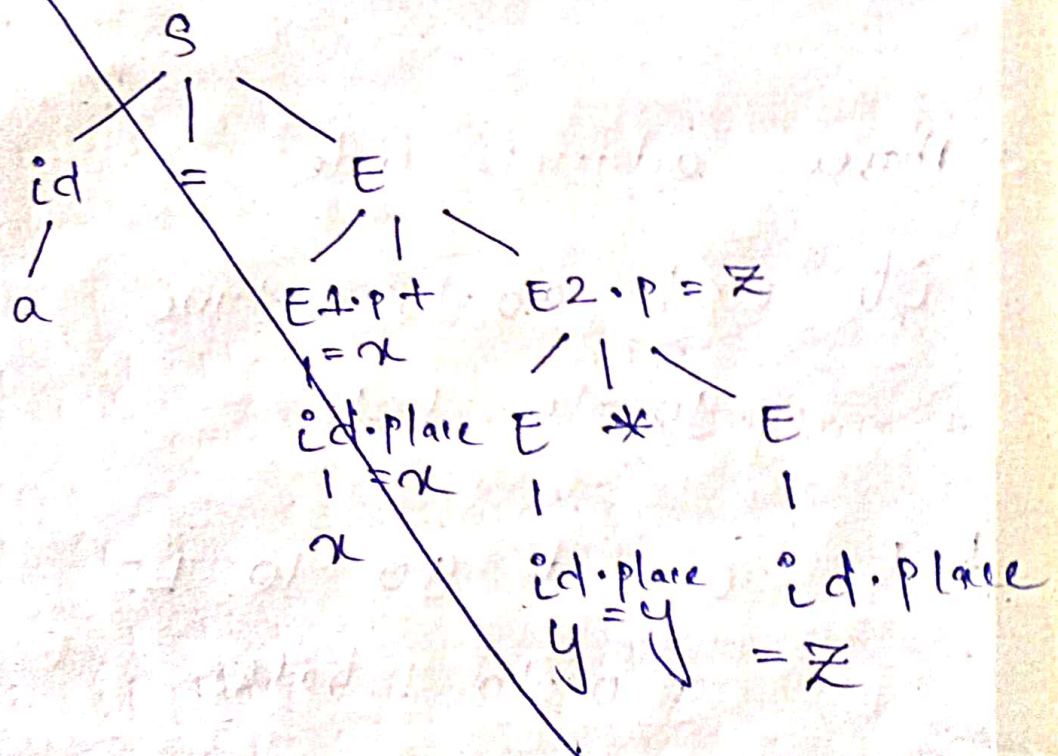 S
id = E
a
E1.p + E2.p = z
= x
id.place E * E
x = x
id.place id.place
y = y = z